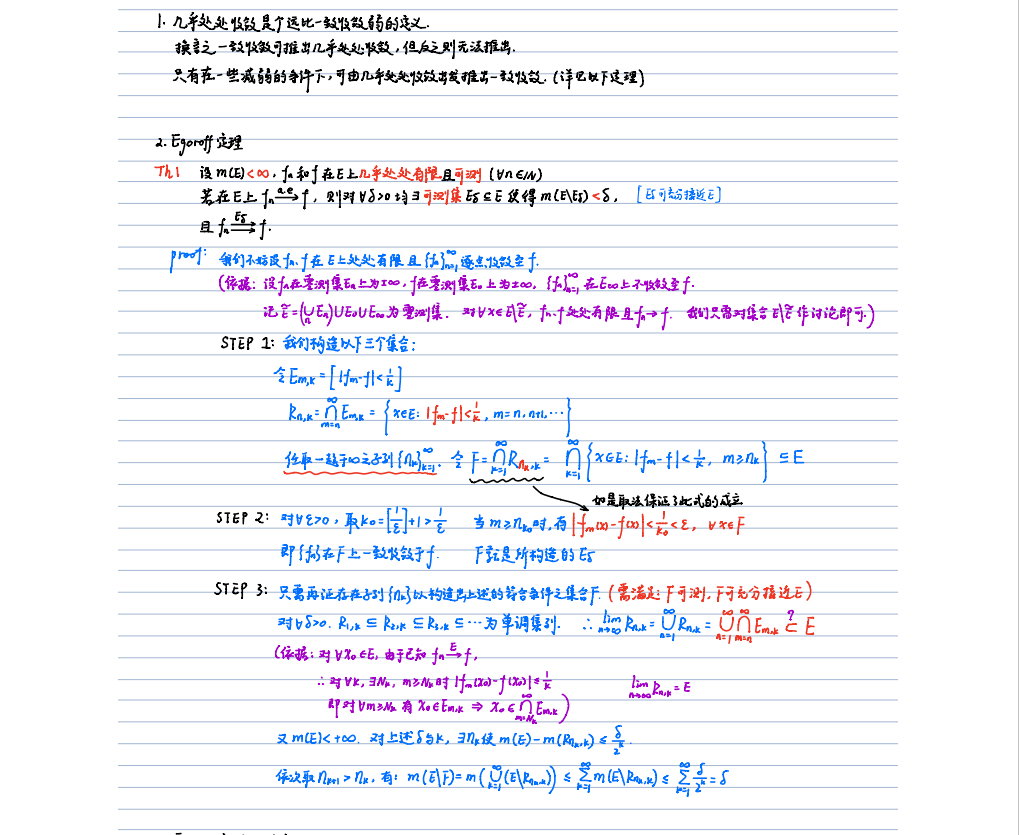 1. 几乎处处收敛是个远比一致收敛弱的定义.
换言之一致收敛可推出几乎处处收敛, 但反之则无法推出.
只有在一些减弱的条件下, 可由几乎处处收敛出发推出一致收敛. (详见以下定理)
2. Egoroff 定理
Th1 设 m(E)<∞, fₙ 和 f 在 E 上几乎处处有限且可测 (∀n∈ℕ)
若在 E 上 fₙ →(a.e) f, 则对 ∀δ>0 均∃可测集 E_δ ⊆ E 使得 m(E\E_δ) < δ, [E_δ可充分接近E]
且 fₙ ⇉(E_δ) f.
proof: 我们不妨设 fₙ, f 在 E 上处处有限且 {fₙ}_{n=1}^∞ 逐点收敛至 f.
(依据: 设 fₙ 在零测集 Eₙ 上为±∞, f 在零测集 E₀ 上为±∞, {fₙ}_{n=1}^∞ 在 E_∞ 上不收敛至 f.
记 Ẽ = (⋃_n Eₙ)∪E₀∪E_∞ 为零测集. 对 ∀x∈E\Ẽ, fₙ, f 处处有限且 fₙ→f. 我们只需对集合 E\Ẽ 作讨论即可.)
STEP 1: 我们构造以下三个集合:
令 E_{m,k} = [|f_m-f|<1/k]
R_{n,k} = ⋂_{m=n}^∞ E_{m,k} = {x∈E: |f_m-f|<1/k, m=n, n+1, ⋯}
任取一趋于∞之子列 {n_k}_{k=1}^∞. 令 F = ⋂_{k=1}^∞ R_{n_k,k} = ⋂_{k=1}^∞ {x∈E: |f_m-f|<1/k, m≥n_k} ⊆ E
如是取法保证了此式的成立
STEP 2: 对∀ε>0, 取 k₀=[1/ε]+1>1/ε 当 m≥n_{k₀} 时, 有 |f_m(x)-f(x)|<1/k₀<ε, ∀x∈F
即 {fₙ} 在 F 上一致收敛于 f. F 就是所构造的 E_δ
STEP 3: 只需再证存在子列 {n_k} 以构造出上述的符合条件之集合 F. (需满足: F可测, F可充分接近E)
对∀δ>0. R_{1,k} ⊆ R_{2,k} ⊆ R_{3,k} ⊆ ⋯ 为单调集列. ∴ lim_{n→∞} R_{n,k} = ⋃_{n=1}^∞ R_{n,k} = ⋃_{n=1}^∞ ⋂_{m=n}^∞ E_{m,k} ⊆? E
(依据: 对∀x₀∈E, 由于已知 fₙ →(E) f,
∴ 对∀k, ∃N_k, m≥N_k 时 |f_m(x₀)-f(x₀)|≤1/k lim_{n→∞} R_{n,k} = E
即对∀m≥N_k 有 x₀∈E_{m,k} ⇒ x₀∈⋂_{m=N_k}^∞ E_{m,k})
又 m(E)<+∞. 对上述 δ 与 k, ∃n_k 使 m(E)-m(R_{n_k,k}) ≤ δ/2^k.
依次取 n_{k+1}>n_k, 有: m(E\F) = m(⋃_{k=1}^∞ (E\R_{n_k,k})) ≤ ∑_{k=1}^∞ m(E\R_{n_k,k}) ≤ ∑_{k=1}^∞ δ/2^k = δ